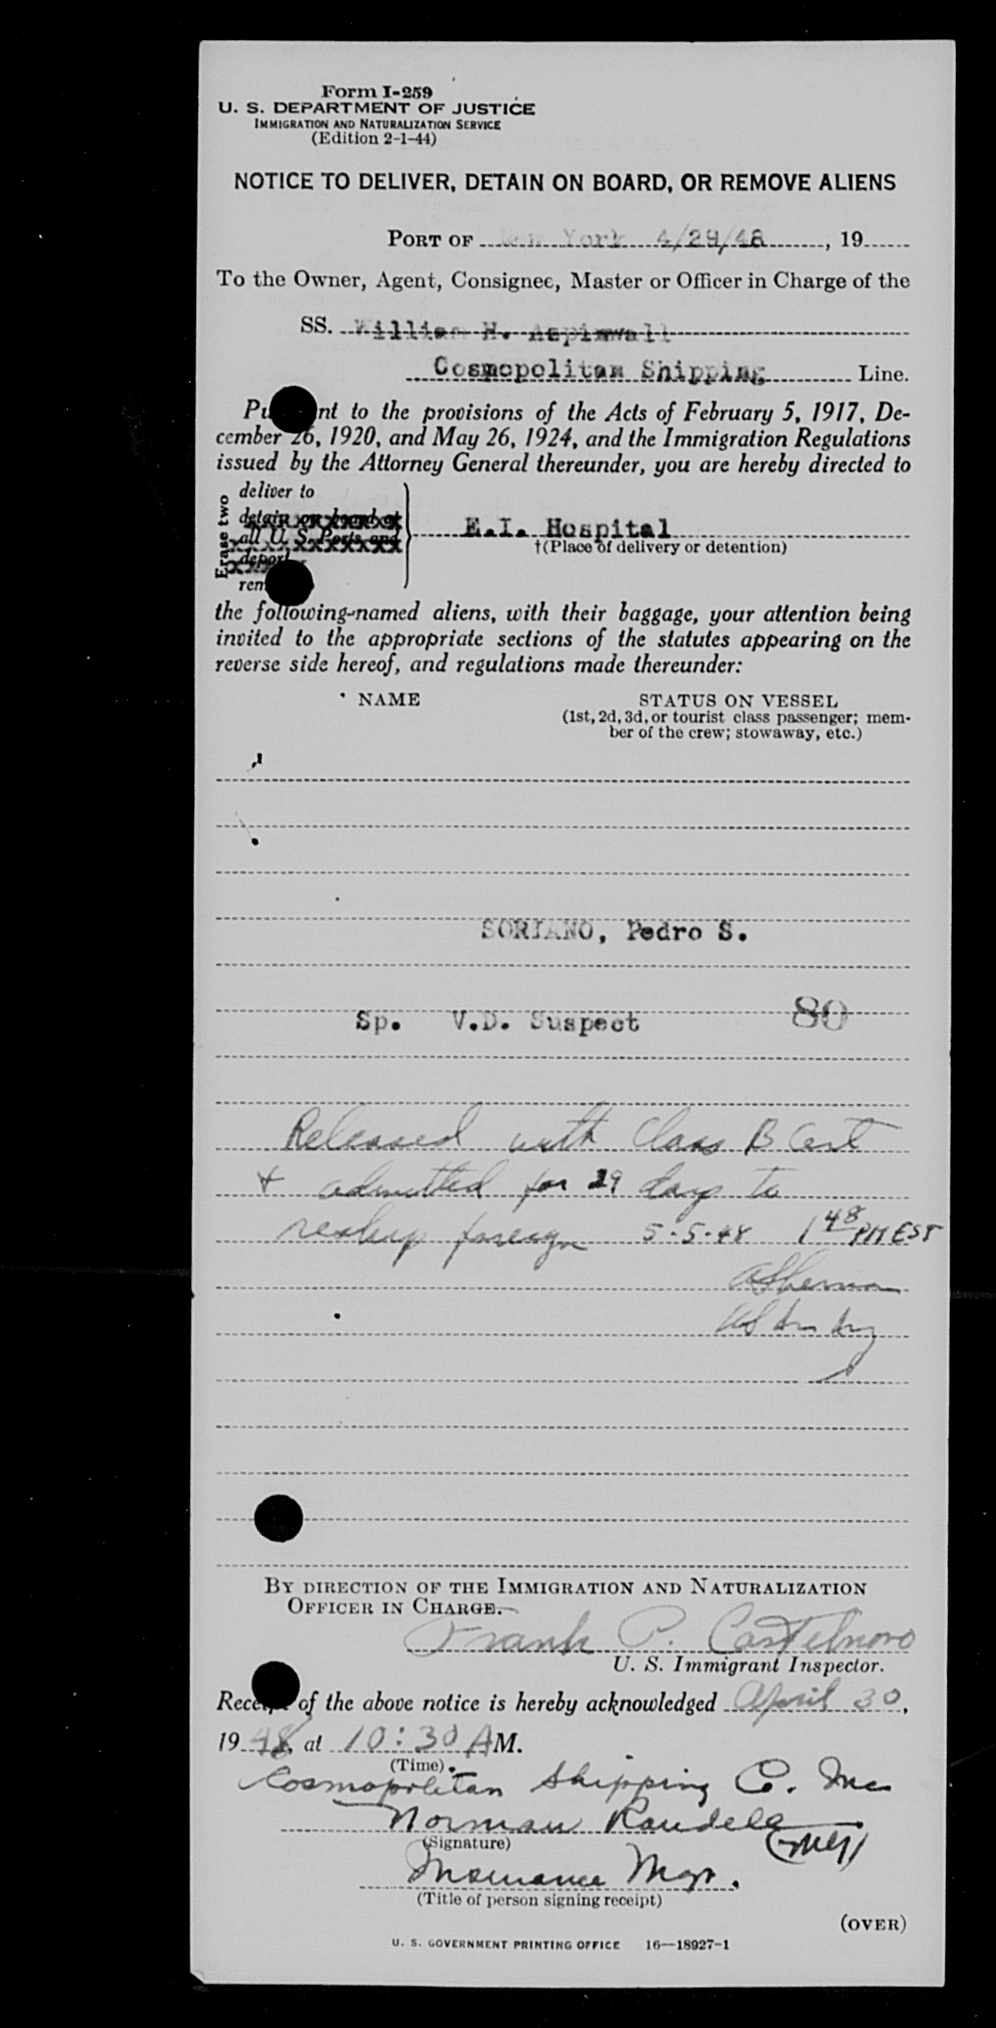 Form I-259
U. S. DEPARTMENT OF JUSTICE
IMMIGRATION AND NATURALIZATION SERVICE
(Edition 2-1-44)
NOTICE TO DELIVER, DETAIN ON BOARD, OR REMOVE ALIENS
PORT OF New York 4/29/48, 19
To the Owner, Agent, Consignee, Master or Officer in Charge of the
SS. William H. Aspinwall
Cosmopolitan Shipping Line.
Pu nt to the provisions of the Acts of February 5, 1917, De-
cember 26, 1920, and May 26, 1924, and the Immigration Regulations
issued by the Attorney General thereunder, you are hereby directed to
Erase two
deliver to
detain on board at
all U. S. Ports and
deport
rem
E.I. Hospital
†(Place of delivery or detention)
the following-named aliens, with their baggage, your attention being
invited to the appropriate sections of the statutes appearing on the
reverse side hereof, and regulations made thereunder:
NAME
STATUS ON VESSEL
(1st, 2d, 3d, or tourist class passenger; mem-
ber of the crew; stowaway, etc.)
SORIANO, Pedro S.
Sp. V.D. Suspect 80
Released with Class B Cert
+ admitted for 29 days to
reship foreign 5-5-48 1 48 PM EST
ASherman
By DIRECTION OF THE IMMIGRATION AND NATURALIZATION
OFFICER IN CHARGE.
Frank P. Castelnovo
U. S. Immigrant Inspector.
Receipt of the above notice is hereby acknowledged April 30,
1948, at 10:30 AM.
(Time)
Cosmopolitan Shipping Co. Inc
Norman Randell
(Signature)
Insurance Mgr.
(Title of person signing receipt)
(OVER)
U. S. GOVERNMENT PRINTING OFFICE 16—18927-1